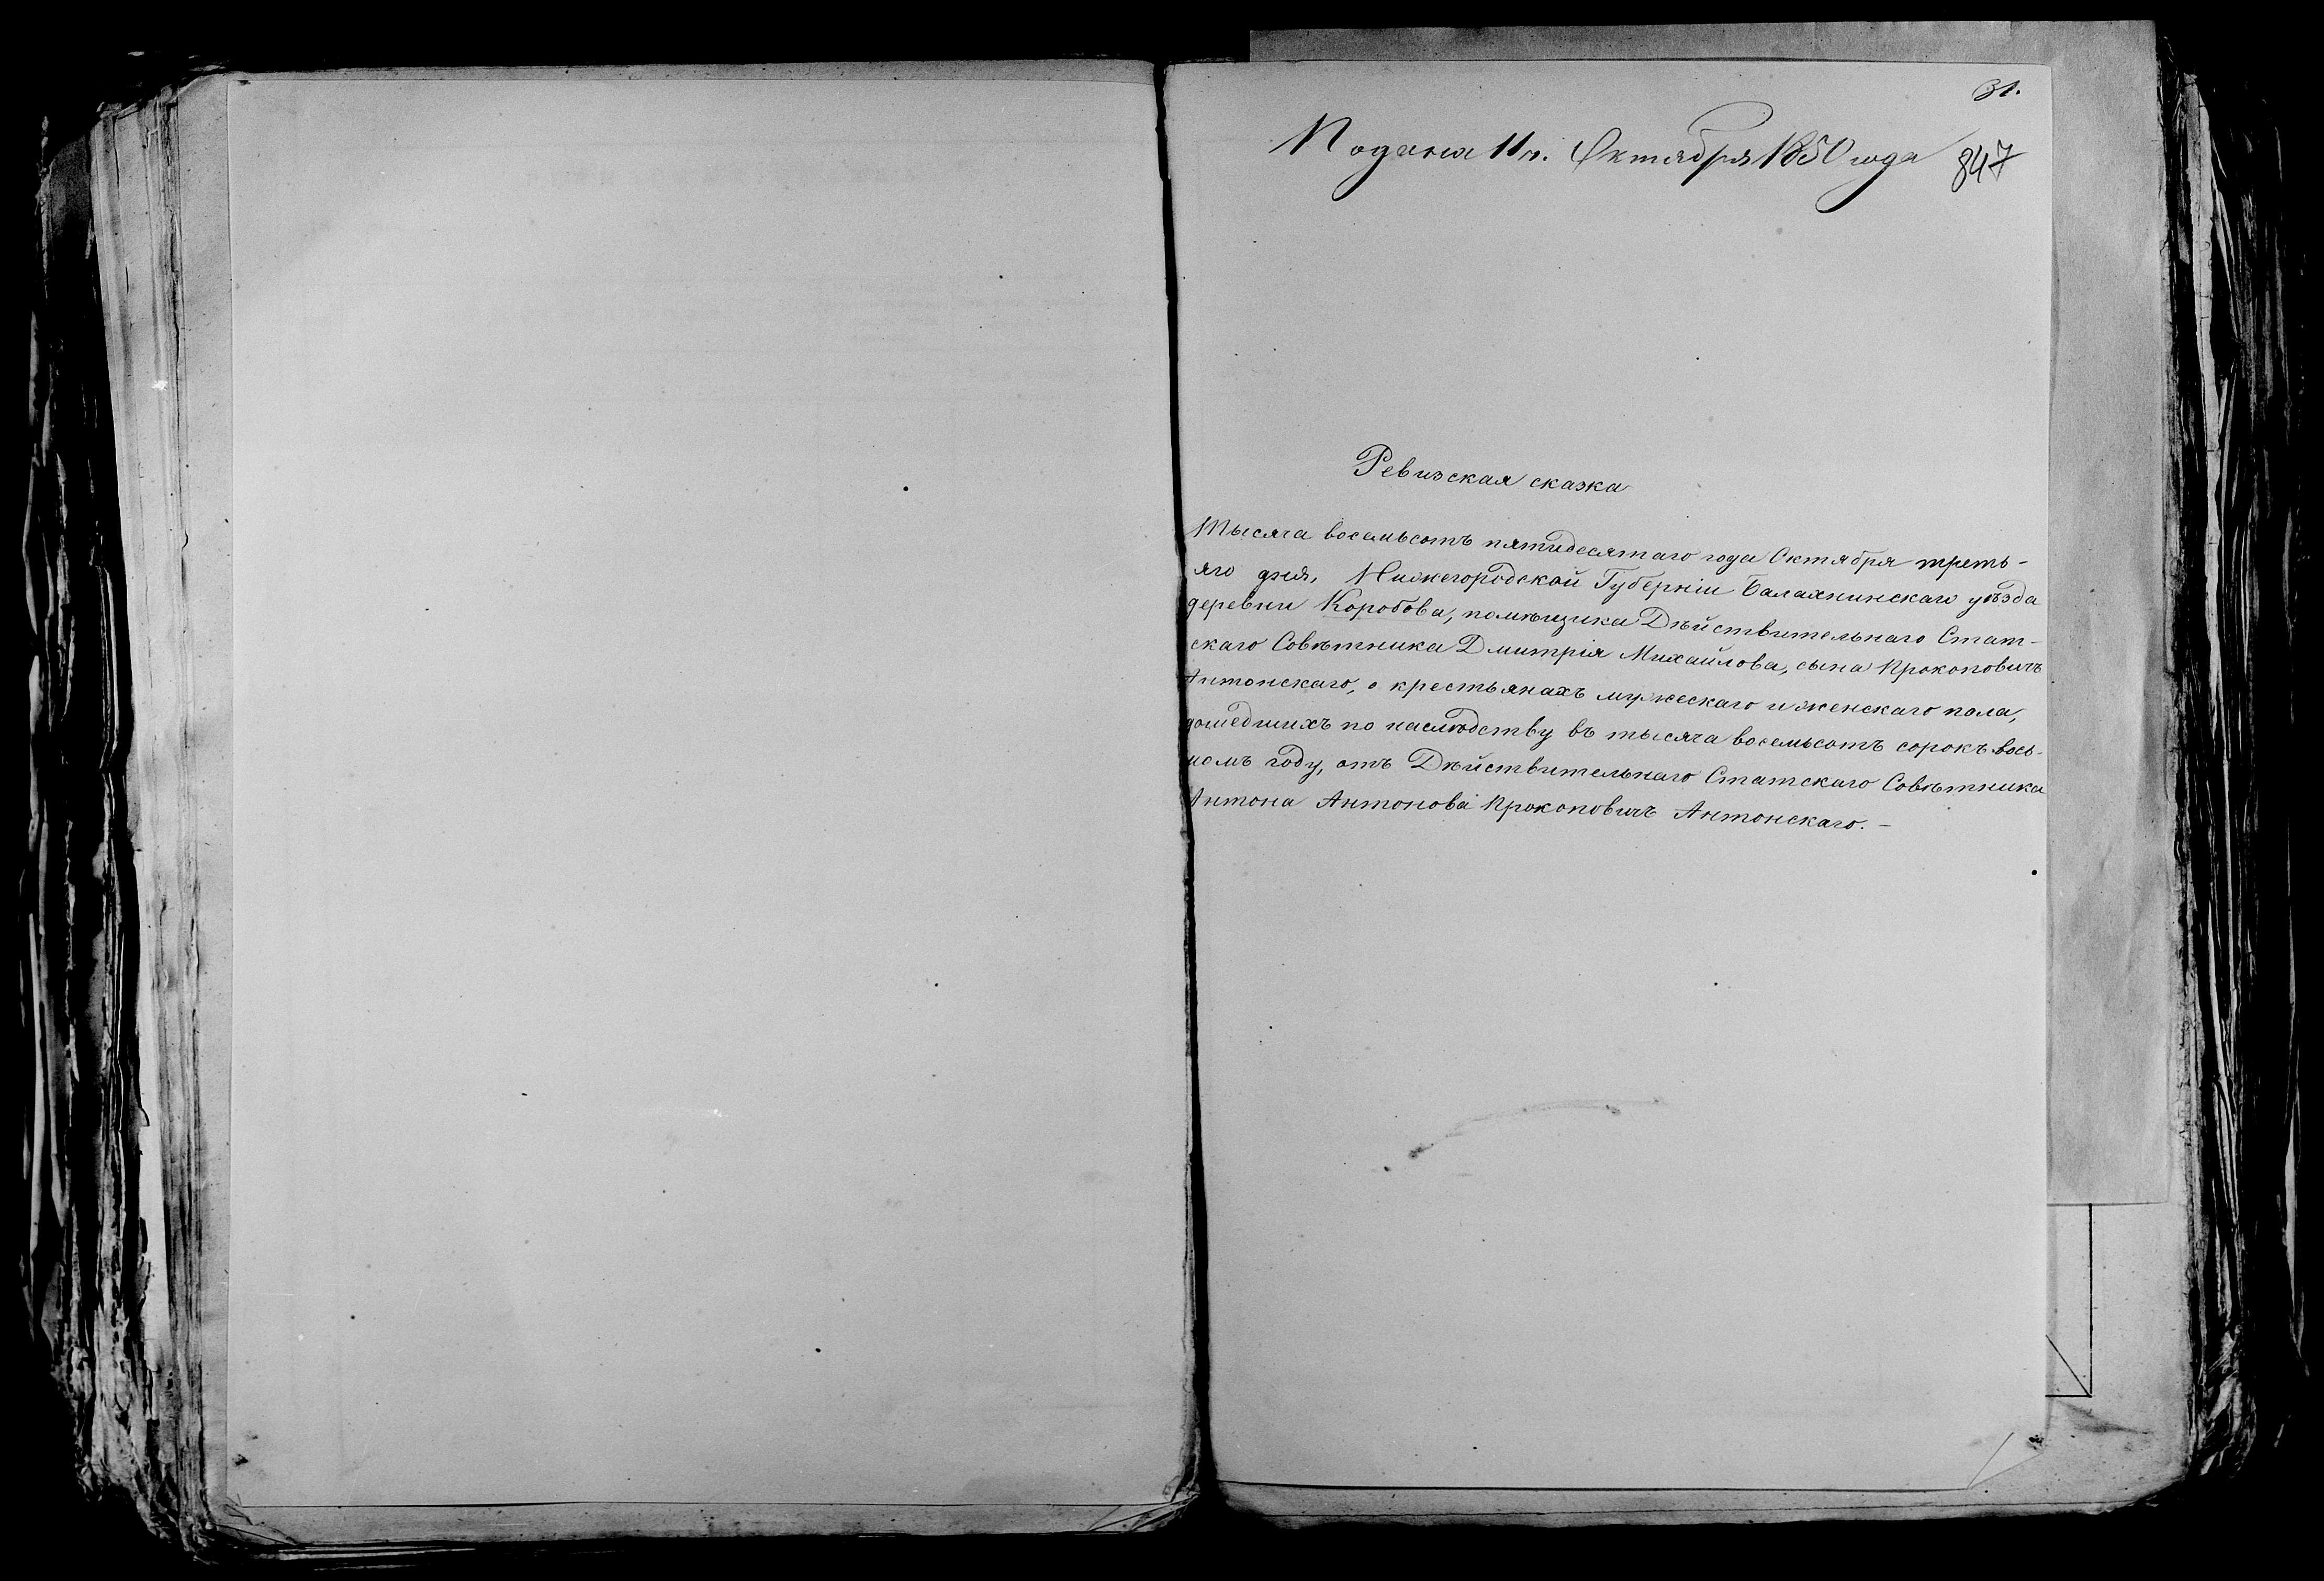 31.
Подана 11го. Октября 1850 года
847
Ревизская сказка
Тысяча восемьсотъ пятидесятаго года Октября треть-
яго дня, Нижегородской Губерніи Балахнинскаго уѣзда
деревни Коробова, помѣщика Дѣйствительнаго Стат-
скаго Совѣтника Дмитрія Михайлова, сына Прокоповичъ
Антонскаго, о крестьянахъ мужескаго и женскаго пола,
дошедшихъ по наслѣдству въ тысяча восемьсотъ сорокъ вось-
момъ году, отъ Дѣйствительнаго Статскаго Совѣтника
Антона Антонова Прокоповичъ Антонскаго.-